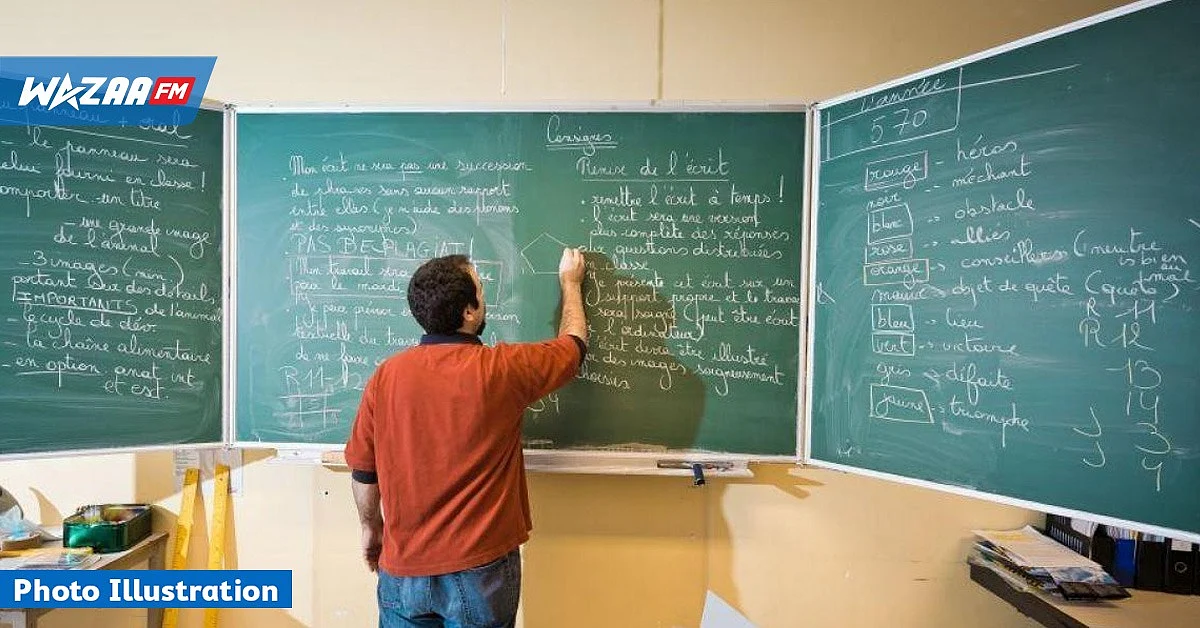 WAZAA FM
panneau + oral
- le panneau sera
celui fourni en classe !
comporter un titre
- une grande image
de l'animal
- 3 images (min)
portant sur des détails
IMPORTANTS de l'animal
- le cycle de dév.
- la chaîne alimentaire
- en option anat int
et est.
Consignes
. Mon écrit ne sera pas une succession
de phrases sans aucun rapport
entre elles (
et des synonymes)
. PAS DE PLAGIAT !
Mon travail sera
pour le mardi
. Je peux
du
de ne
R11
Remise de l'écrit
. remettre l'écrit à temps !
. l'écrit sera une version
plus complète des réponses
aux questions distribuées
en classe
. je présente cet écrit sur un
support propre et le travail
sera soigné (peut être écrit
à l'ordinateur)
. écrit devra être illustré
des images soigneusement
choisies
L'année
570
rouge - héros
noir -- méchant
blanc -- obstacle
rose -- alliés
orange -- conseillers (neutre
bien
au
mal
mauve -- objet de quête (quête)
bleu -- lieu
vert -- victoire
gris -- défaite
jaune -- triomphe
R 11
R 12
13
14
J 3
J 4
Photo Illustration